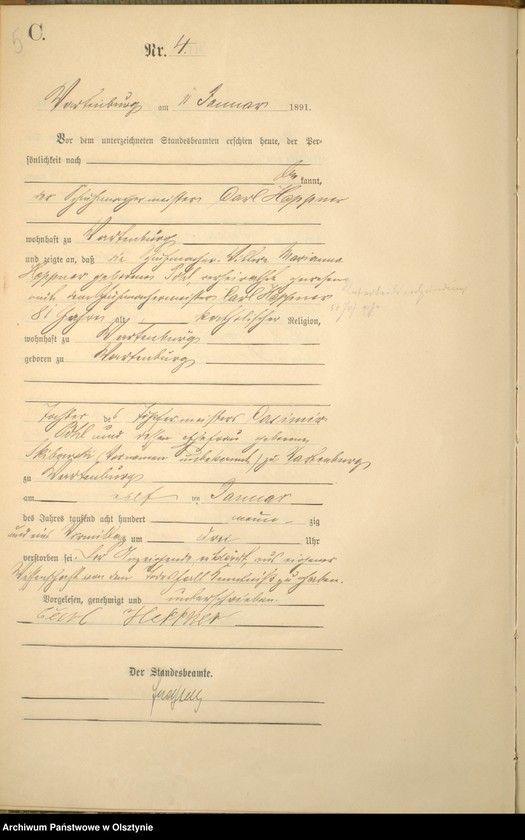 5 C.
Nr. 4.
Wartenburg am 11 Januar 1891.
Vor dem unterzeichneten Standesbeamten erschien heute, der Per-
sönlichkeit nach
be kannt,
der Schuhmachermeister Carl Heppner
wohnhaft zu Wartenburg
und zeigte an, daß die Schuhmacher- Marianna
Heppner geborene verheirathet gewesen
mit dem Schuhmachermeister Carl Heppner
81 Jahre alt, katholischer Religion,
wohnhaft zu Wartenburg
geboren zu Wartenburg
Tochter des Töpfermeisters Casimir
und dessen Ehefrau geborene
(Vornamen unbekannt) zu Wartenburg
zu Wartenburg
am elf ten Januar
des Jahres tausend acht hundert neun zig
und ein Vormittags um drei Uhr
verstorben sei. Der Anzeigende erklärt, aus eigener
Wissenschaft von dem Todesfall Kenntniß zu haben.
Vorgelesen, genehmigt und unterschrieben.
Carl Heppner
Der Standesbeamte.
Archiwum Państwowe w Olsztynie